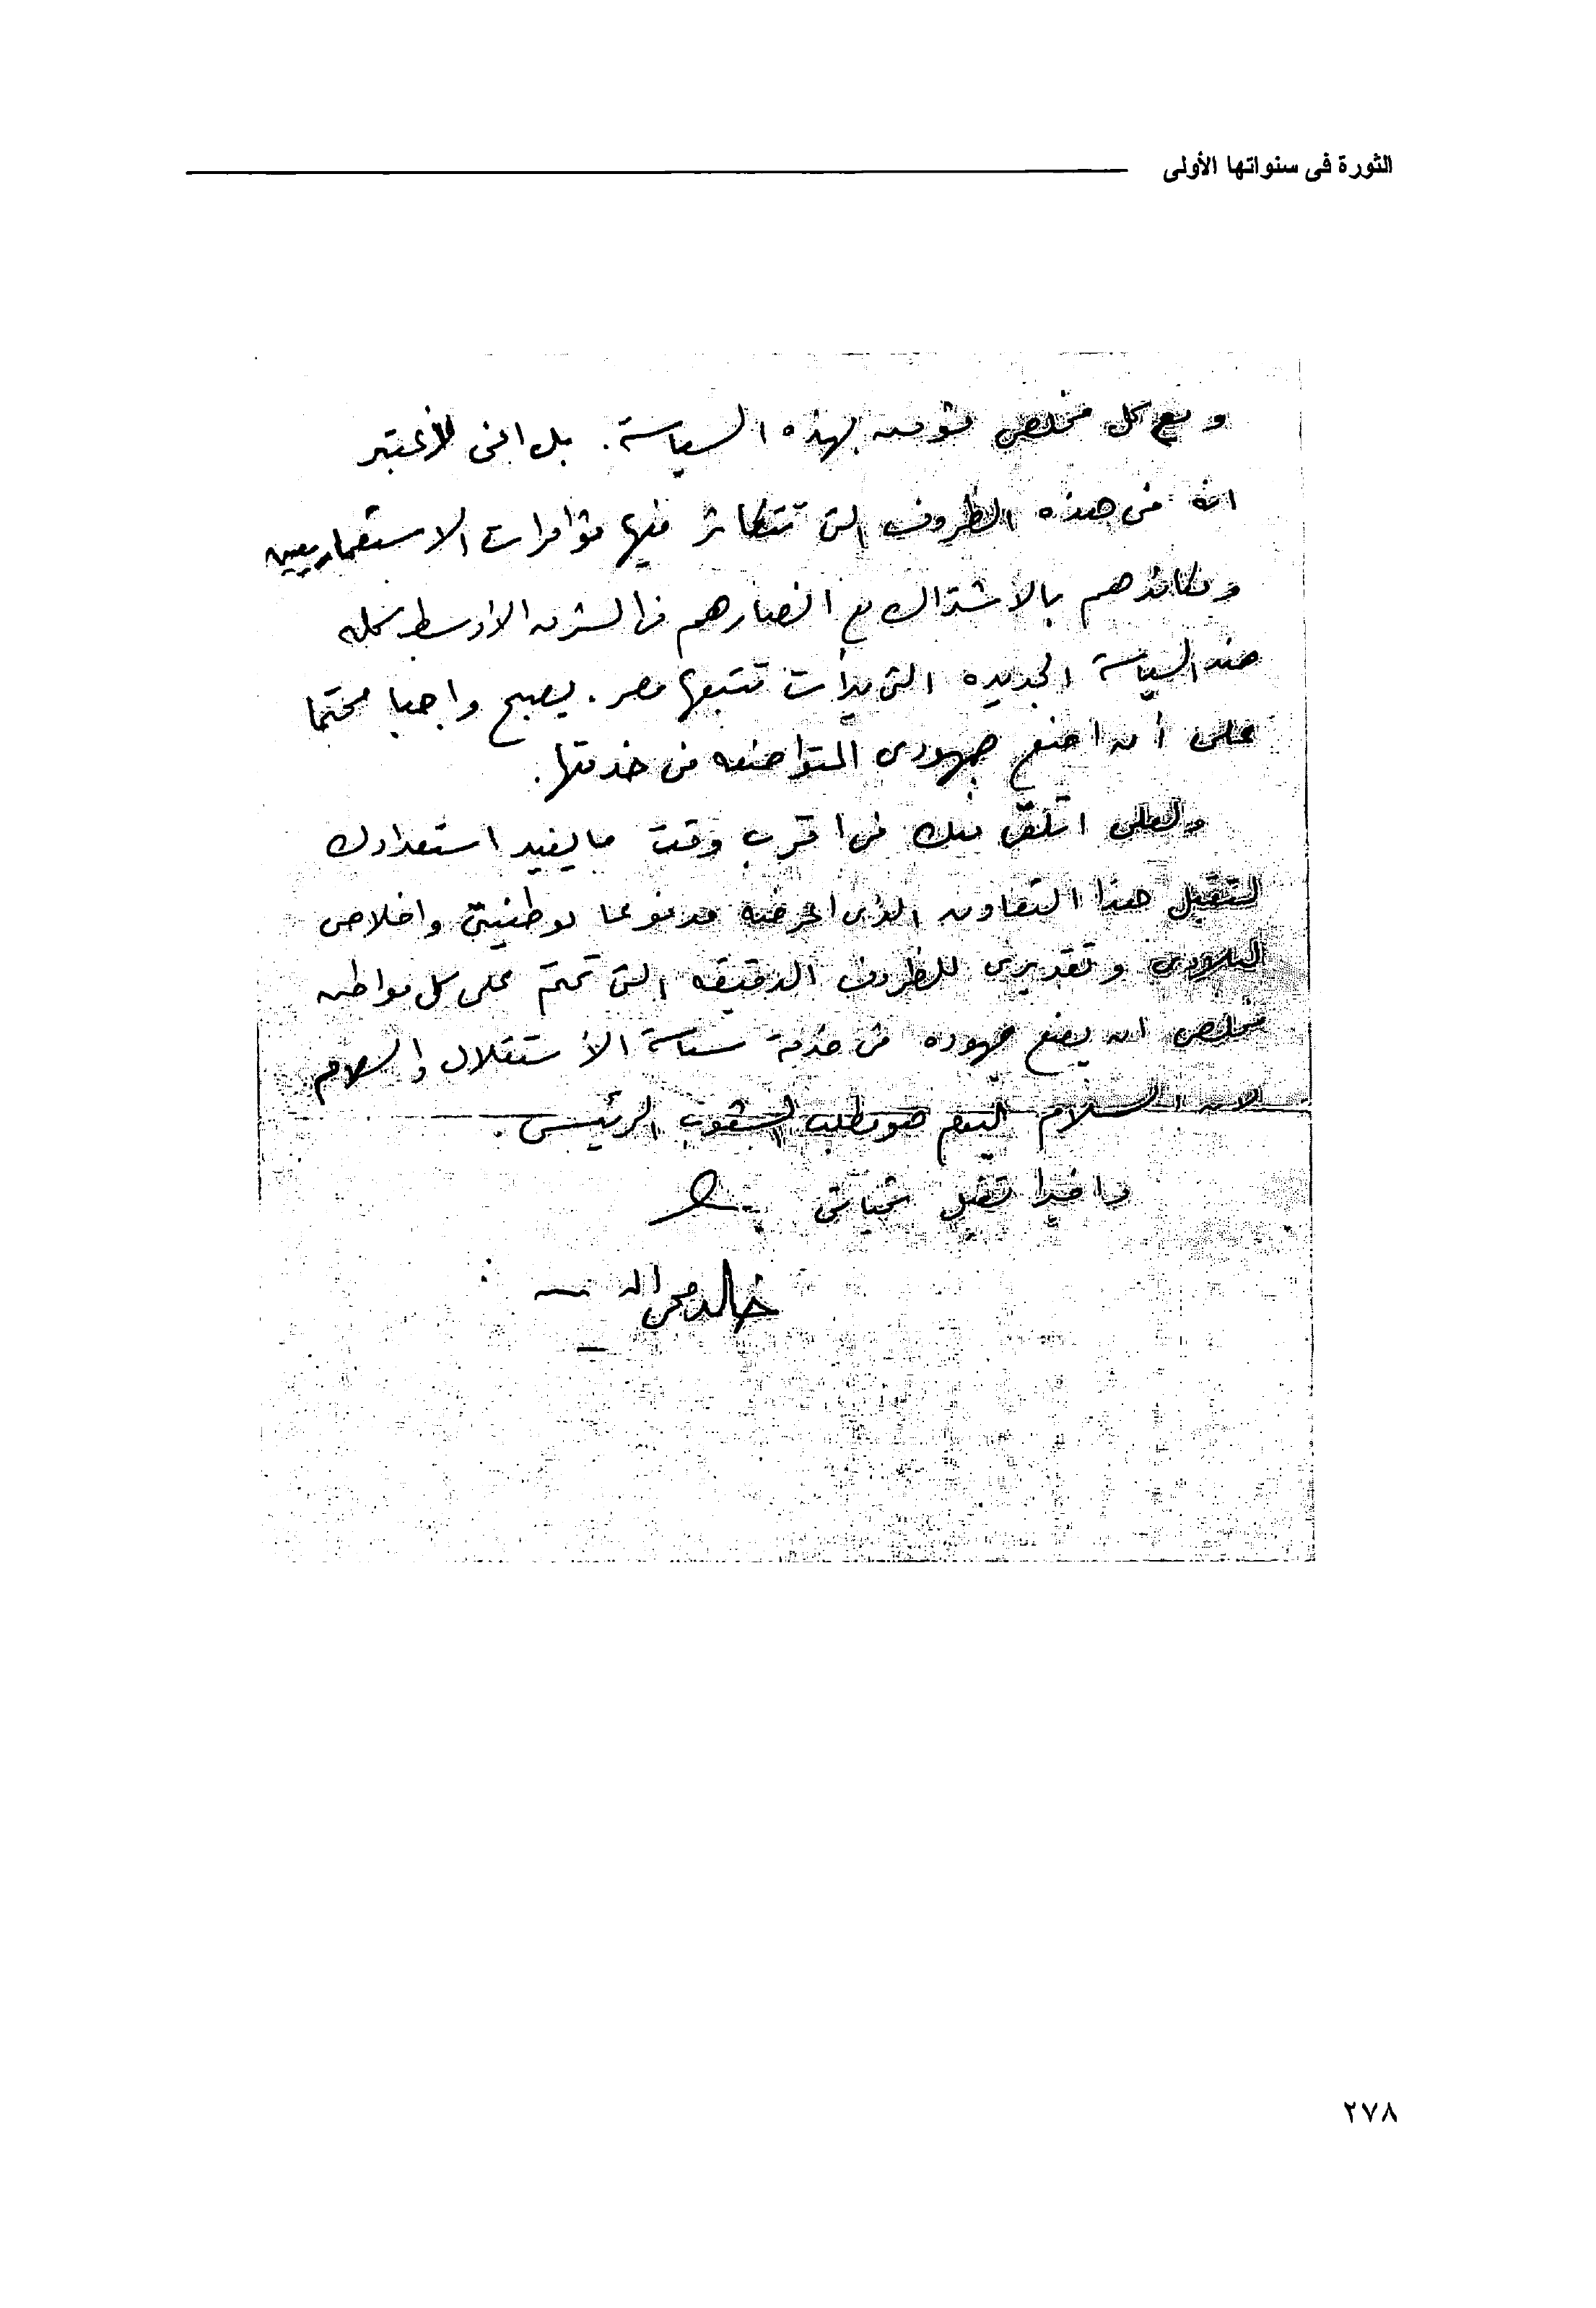 الثورة فى سنواتها الأولى
ومع كل مخلص يؤمن بهذه السياسة. بل اننى لأعتبر
انه فى هذه الظروف التى تتكاثر فيها مؤامرات الاستعماريين
ومكائدهم بالاشتراك مع انصارهم فى الشرق الأوسط كله
ضد السياسة الجديده التى بدأت تتبعها مصر. يصبح واجبا محتما
على أن اضع جهودى المتواضعه فى خدمتها.
ولعلى اتلقى منك فى اقرب وقت ما يفيد استعدادك
لتقبل هذا التعاون الذى اعرضه مدفوعا بوطنيتى واخلاصى
لبلادى وتقديرى للظروف الدقيقه التى تحتم على كل مواطن
مخلص ان يضع جهوده فى خدمة سياسة الأستقلال والسلام
لان السلام اليوم هو مطلب الشعوب الرئيسى.
واخيرا تقبل تحياتى
خالد محى الدين
٢٧٨